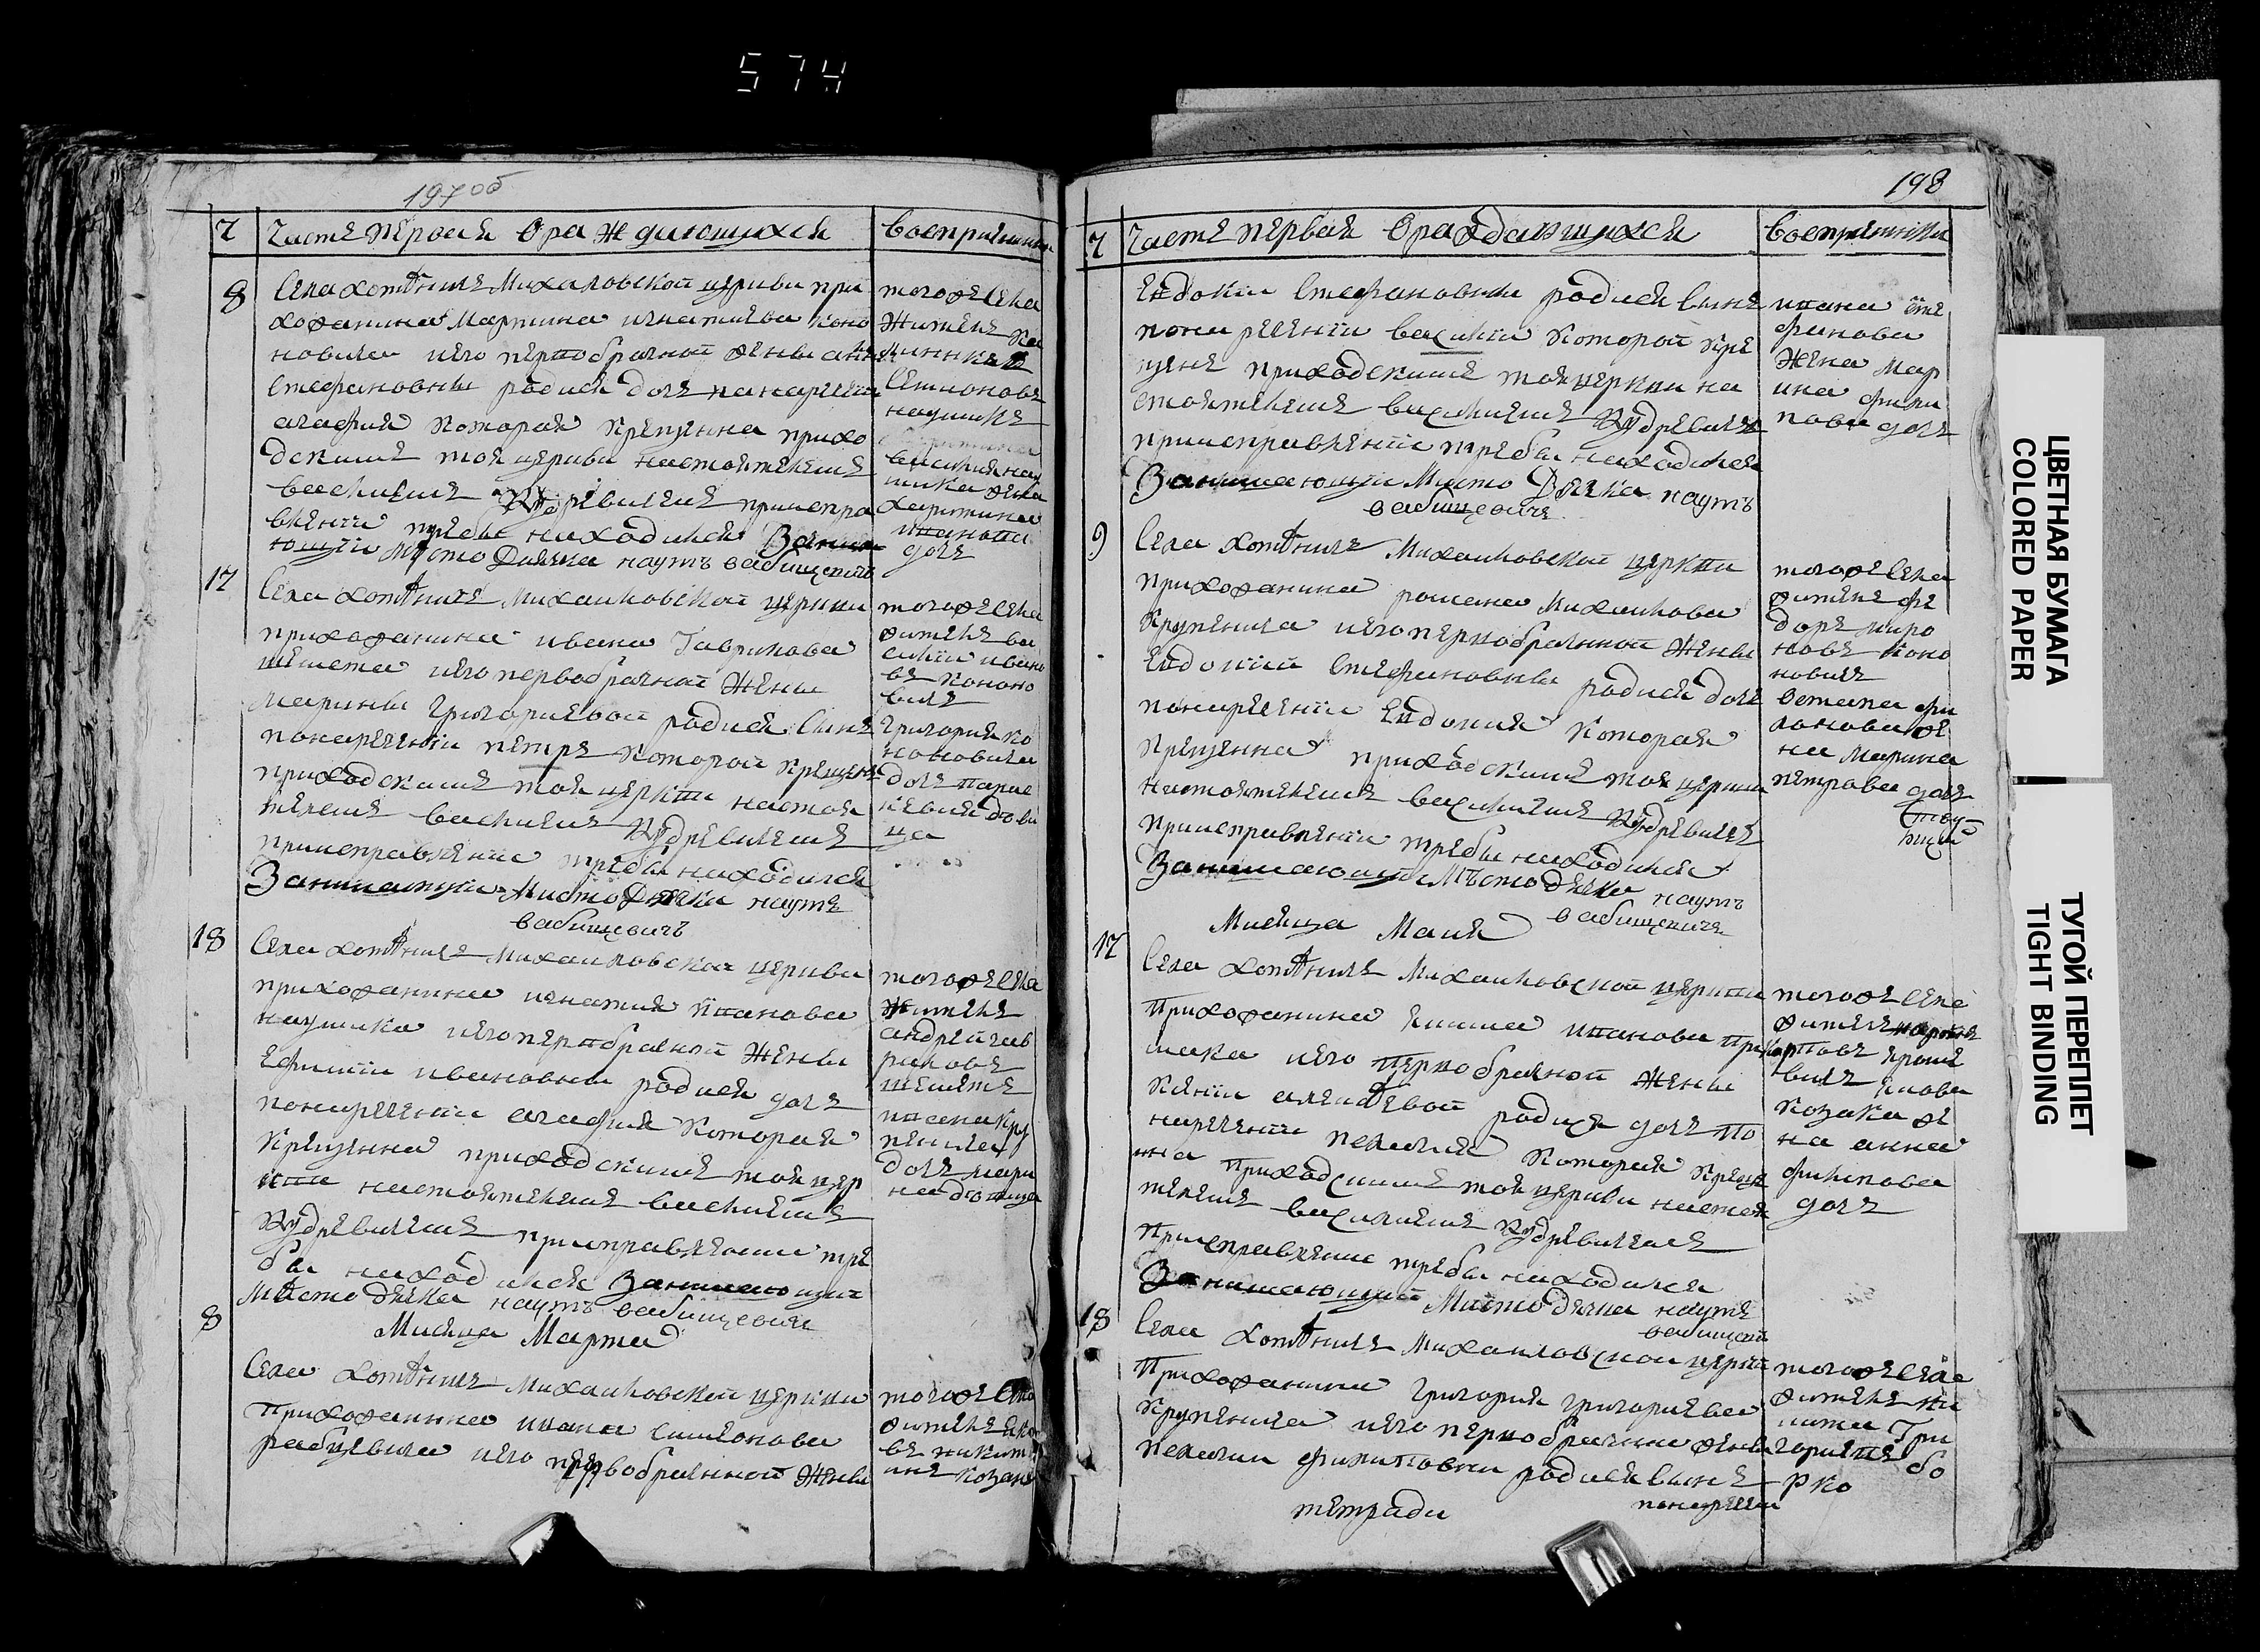 574
197об
Ч
Часть первая Оражdающихся
восприемники
8
Села хотѣничъ Михаловской церкви при
хожанина Мартина игнатиева коно
новича иего первобрачной жены анн
Стефановны родися дочь нанаречен
агафия которая крещенна прихо
дскимъ тоя церкви настоятелемъ
василиемъ Кудревичемъ приисправ
влении требы находился Занима
ющий Мѣсто Дьячка наумъ вабищевичъ
тогожъ села
житель
Семионовъ
наумикъ
василия нау
мика жена
харитина
иванова
дочь
17
Села хотѣничъ Михаиловской церкви
прихожанина ивана Гаврилова
шешета иего первобрачной жены
марины григориевой родися Сынъ
понаречении петръ которой крещенъ
приходскимъ тоя церкви настоя
телемъ василиемъ Кудревичемъ
приисправлении требы находился
Занимающий Мѣсто Дьячка наумъ
вабищевичъ
тогожъ села
житель ва
силий ивано
въ Кононо
вичъ
григория ко
нановича
дочь парас
кевия дѣви
ца
18
Села хотѣничъ Михаиловской церкви
прихожанина игнатия иванова
наумика иего первобрачной жены
Ефимии ивановны родися дочь
понаречении агафия которая
Крещенна приходскимъ тоя цер
кви настоятелемъ василиемъ
Кудревичемъ приисправлении тре
бы находился Занимающии
Мѣсто дьячка наумъ вабищевичъ
тогожъ села
житель
андрей гав
риловъ
шешетъ
Кру
пенича
дочь мари
на девица
Мисяца Марта
8
Села хотѣничъ Михаиловской церкви
прихожанина ивана симионова
рабцевича иего первобрачной жены
тогожъ села
житель яко
въ никит
инъ козакъ
198
Ч
Часть первая Ораждающихся
восприемники
Евдокии Стефановны родися сынъ
понаречении василий которой кре
щенъ приходскимъ тоя церкви на
стоятелемъ василиемъ Кудревичем
приисправлении требы находился
Занимающии Мисто Дьячка наумъ
вабищевичъ
ивана сте
фанова
жена мар
ина фили
пова дочь
9
Села хотѣничъ Михаиловской церкви
прихожанина романа Михаилова
Крупенича иего первобрачной жены
Евдокии Стефановны родися дочь
понаречении Евдокия которая
Крещенна приходскимъ тоя церкви
настоятелемъ василиемъ Кудревичем
приисправлении требы находился
Занимающии Мѣсто дьячка наумъ
вабищевичъ
тогожъ села
житель фе
доръ миро
новъ коно
новичъ
Остапа фи
лонова же
на Марина
петрова дочь
Мисяца Маия
17
Села хотѣничъ Михаиловской церкви
Прихожанина иванова
иего первобрачной жены
Ксении алексѣевой родися дочь по
наречении пелагия которая креще
нна приходскимъ тоя церкви настоя
телемъ василиемъ Кудревичемъ
Приисправлении требы находился
Занимающии Мисто дьячка наумъ
вабищевичъ
тогожъ села
житель
якова
козака же
на анна
филипова
дочь
18
Села хотѣничъ Михаиловской церкви
Прихожанина григория григориева
Крупенича иего первобрачной жены
пелагии филиповны родися сынъ
понаречении
тетради
тогожъ села
житель ни
кита Гри
гориевъ бо
рко
ЦВЕТНАЯ БУМАГА
COLORED PAPER
ТУГОЙ ПЕРЕПЛЕТ
TIGHT BINDING